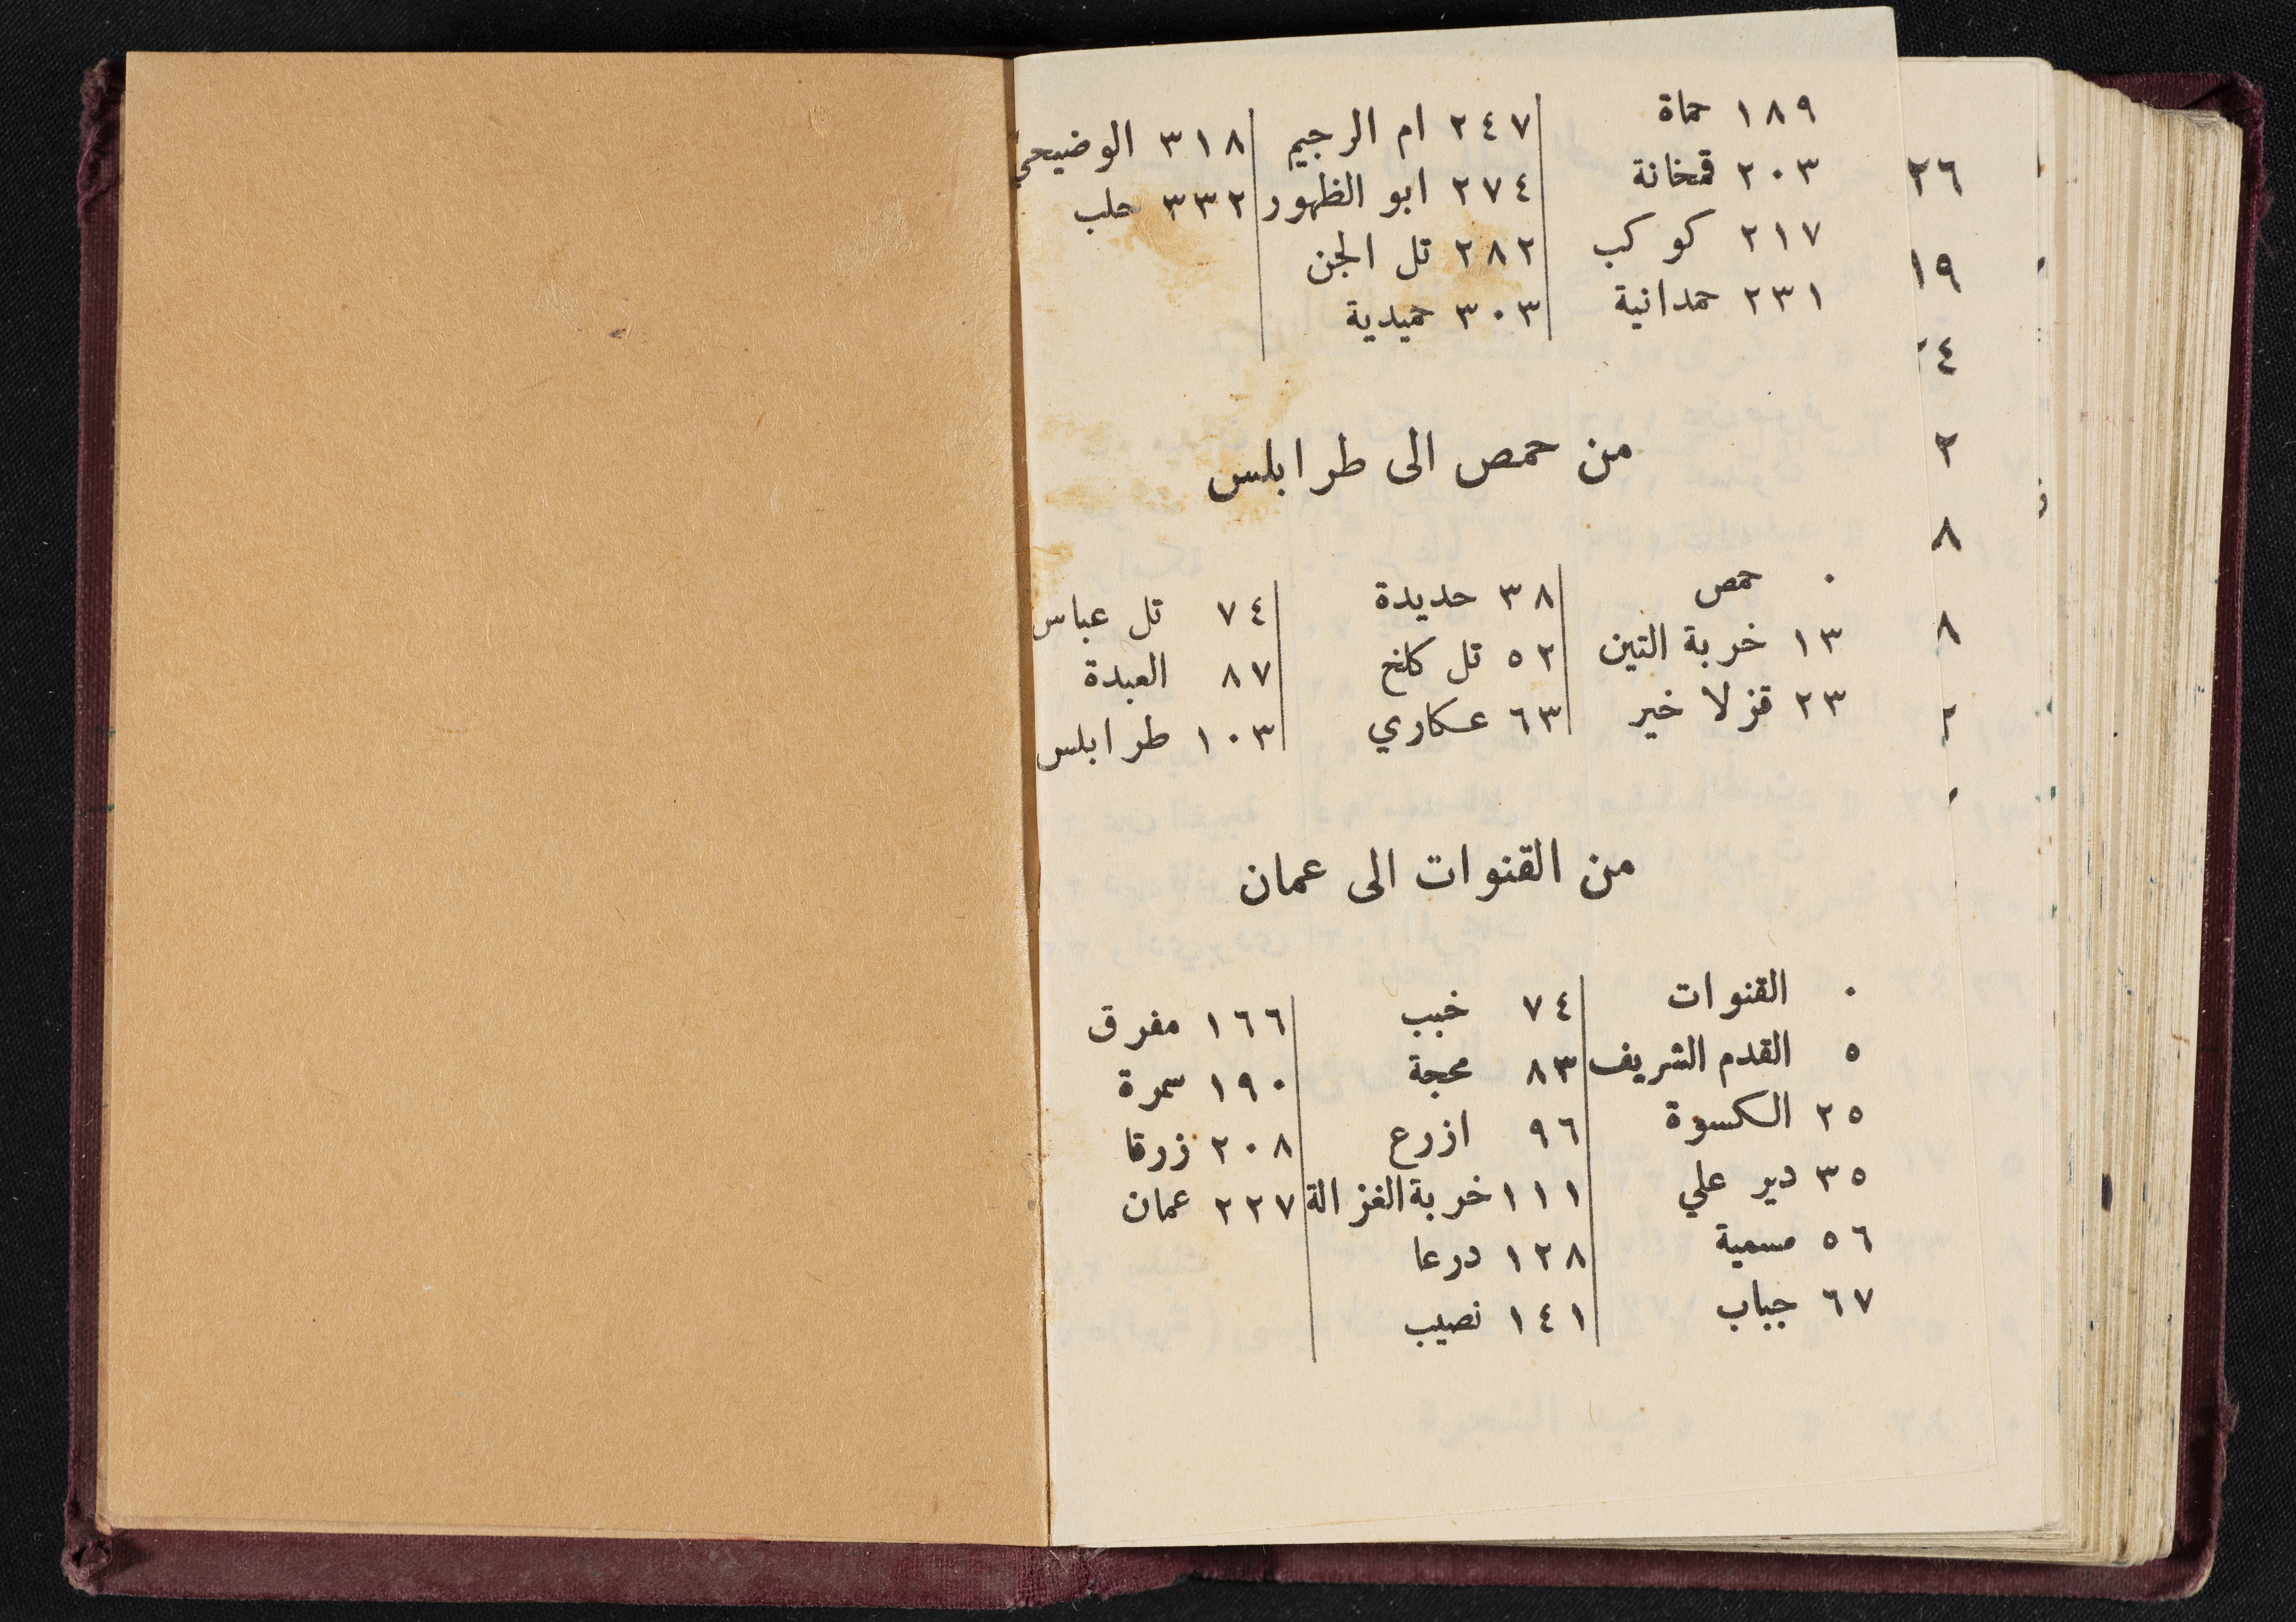 ١٨٩ حماة
٢٠٣ قمخانة
٢١٧ كوكب
٢٣١ حمدانية
٢٤٧ ام الرجيم
٢٧٤ ابو الظهور
٢٨٢ تل الجن
٣٠٣ حميدية
٣١٨ الوضيحي
٣٣٢ حلب
من حمص الى طرابلس
٠ حمص
١٣ خربة التين
٢٣ قزلا خير
٣٨ حديدة
٥٢ تل كلخ
٦٣ عكاري
٧٤ تل عباس
٨٧ العبدة
١٠٣ طرابلس
من القنوات الى عمان
٠ القنوات
٥ القدم الشريف
٢٥ الكسوة
٣٥ دير علي
٥٦ مسمية
٦٧ جباب
٧٤ خبب
٨٣ محجة
٩٦ ازرع
١١١ خربة الغزالة
١٢٨ درعا
١٤١ نصيب
١٦٦ مفرق
١٩٠ سمرة
٢٠٨ زرقا
٢٢٧ عمان
٢٦
١٩
٤
٢
٨
٨
٢